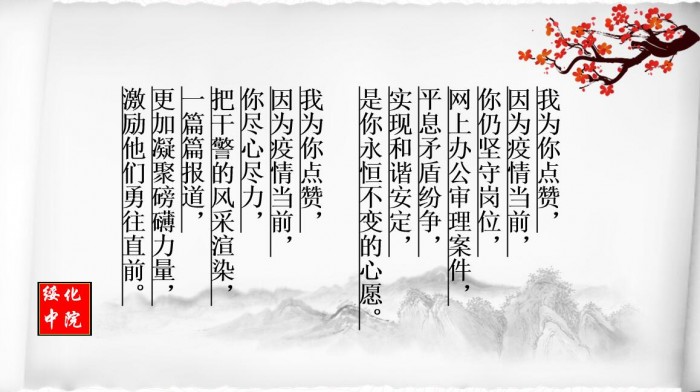 我为你点赞，
因为疫情当前，
你仍坚守岗位，
网上办公审理案件，
平息矛盾纷争，
实现和谐安定，
是你永恒不变的心愿。
我为你点赞，
因为疫情当前，
你尽心尽力，
把干警的风采渲染，
一篇篇报道，
更加凝聚磅礴力量，
激励他们勇往直前。
绥化
中院